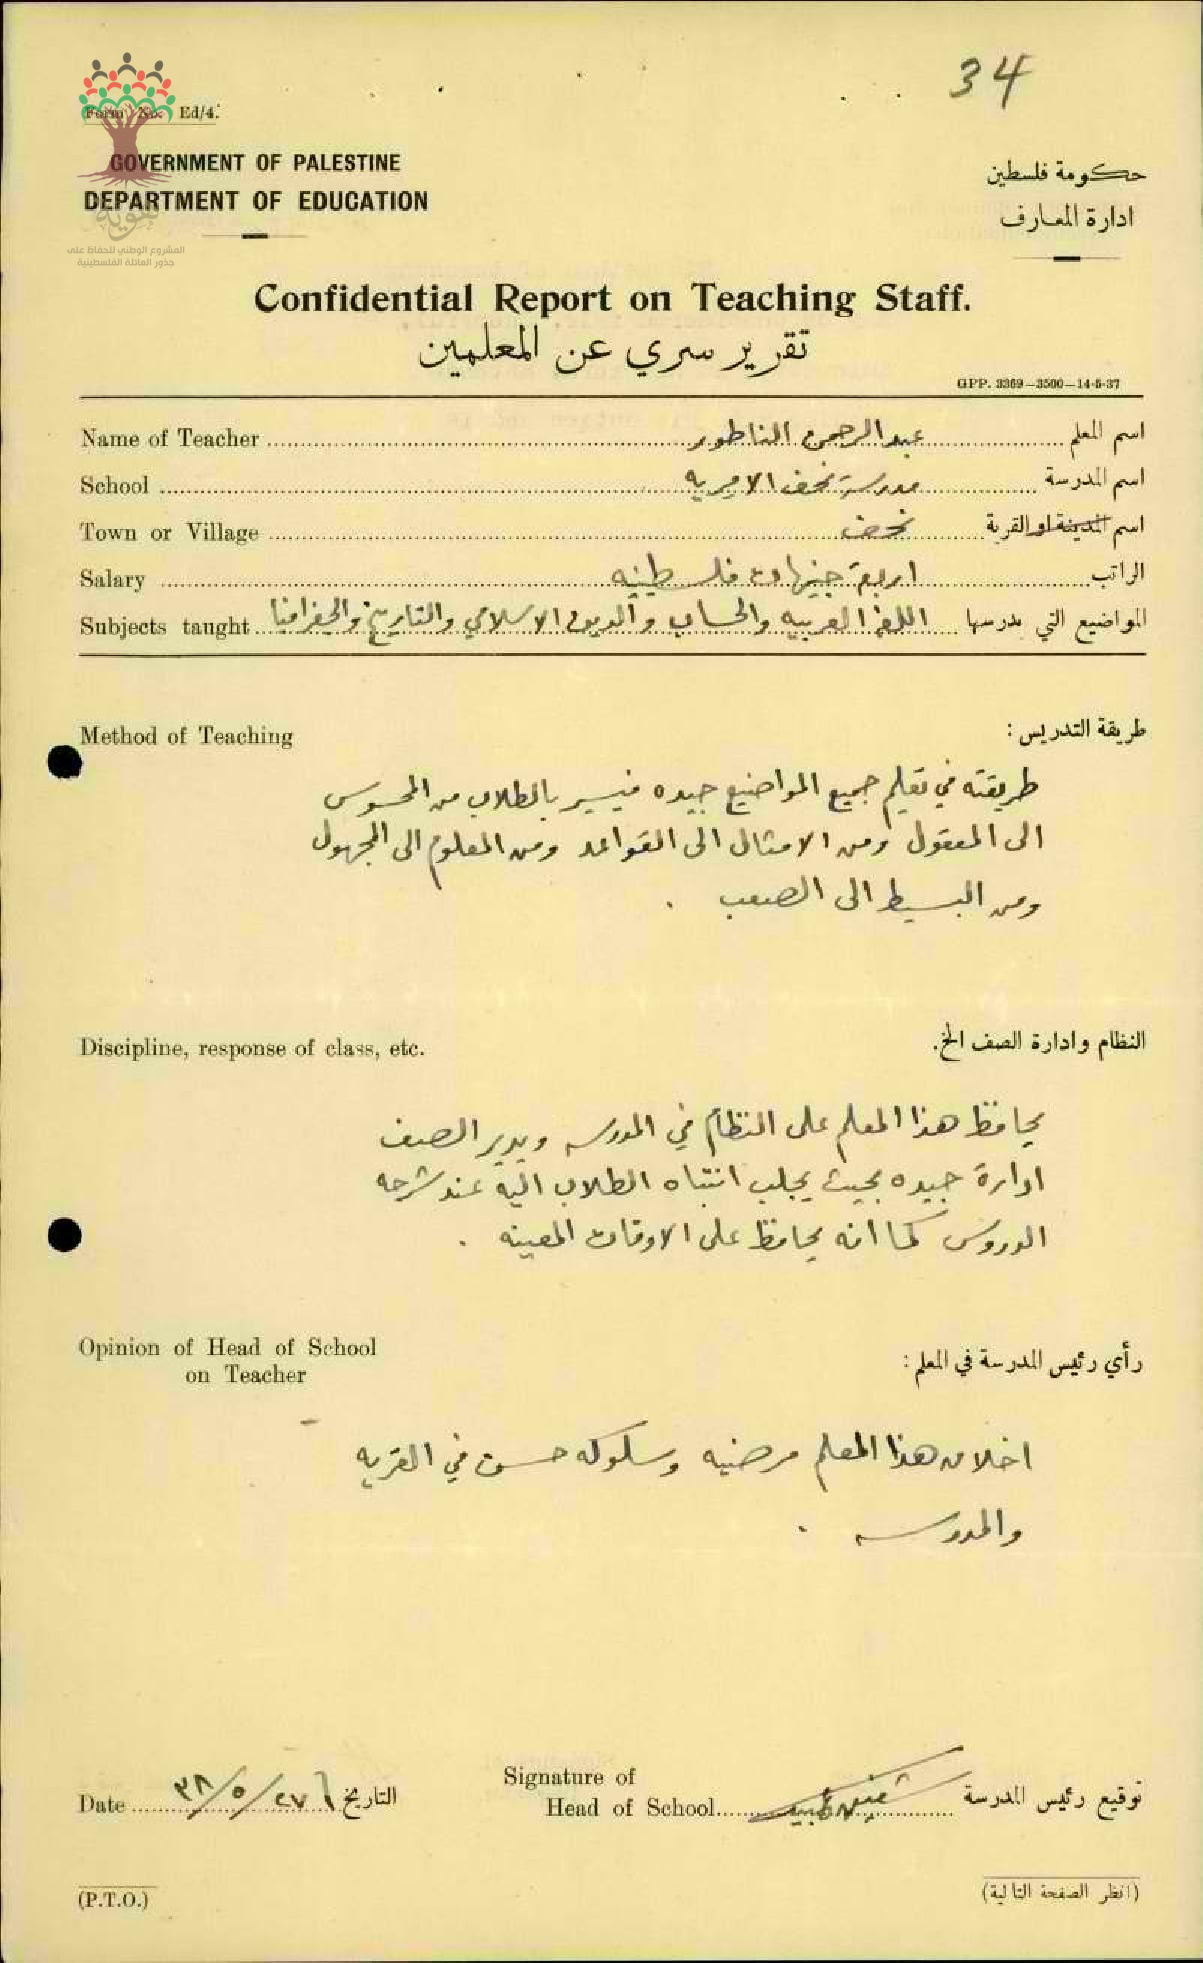 34
Form No. Ed/4.
GOVERNMENT OF PALESTINE
DEPARTMENT OF EDUCATION
حكومة فلسطين
ادارة المعارف
هوية
المشروع الوطني للحفاظ على
جذور العائلة الفلسطينية
Confidential Report on Teaching Staff.
تقرير سري عن المعلمين
GPP. 3369—3500—14-5-37
Name of Teacher عبد الرحمن الناطور اسم المعلم
School مدرسة نحف الاميريه اسم المدرسة
Town or Village نحف اسم المدينة او القرية
Salary اربعة جنيهات فلسطينيه الراتب
Subjects taught اللغة العربيه والحساب والدين الاسلامي والتاريخ والجغرافيا المواضيع التي يدرسها
Method of Teaching طريقة التدريس :
طريقته في تعليم جميع المواضيع جيده فيسير بالطلاب من المحسوس
الى المعقول ومن الامثال الى القواعد ومن المعلوم الى المجهول
ومن البسيط الى الصعب .
Discipline, response of class, etc. النظام وادارة الصف الخ.
يحافظ هذا المعلم على النظام في المدرسه ويدير الصف
ادارة جيده بحيث يجلب انتباه الطلاب اليه عند شرحه
الدروس كما انه يحافظ على الاوقات المعينه .
Opinion of Head of School
on Teacher
رأي رئيس المدرسة في المعلم :
اخلاق هذا المعلم مرضيه وسلوكه حسن في القريه
والمدرسه .
Date ٢٧/٥/٣٨ التاريخ
Signature of
Head of School توقيع رئيس المدرسة
(P.T.O.) (انظر الصفحة التالية)